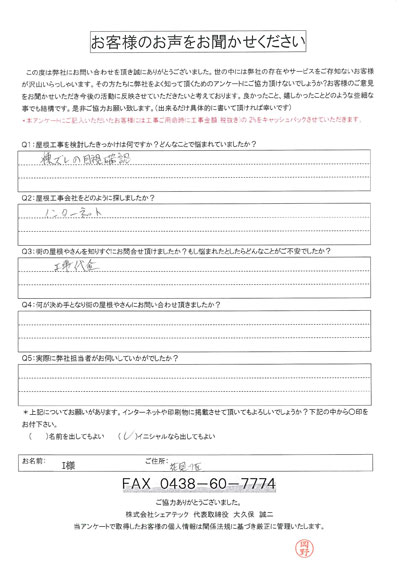 お客様のお声をお聞かせください
この度は弊社にお問い合わせを頂き誠にありがとうございました。世の中には弊社の存在やサービスをご存知ないお客様
が沢山いらっしゃいます。その方たちに弊社をよく知って頂くためのアンケートにご協力頂けないでしょうか?お客様のご意見
をお聞かせいただき今後の活動に反映させていただきたいと考えております。良かったこと、嬉しかったことどのような些細な
事でも結構です。是非ご協力お願い致します。(出来るだけ具体的に書いて頂ければ幸いです)
*本アンケートにご記入いただいたお客様には工事ご用命時に工事金額(税抜き)の2%をキャッシュバックさせていただきます。
Q1:屋根工事を検討したきっかけは何ですか?どんなことで悩まれていましたか?
棟ズレの目視確認
Q2:屋根工事会社をどのように探しましたか?
インターネット
Q3:街の屋根やさんを知りすぐにお問合せ頂けましたか?もし悩まれたとしたらどんなことがご不安でしたか?
工事代金
Q4:何が決め手となり街の屋根やさんにお問い合わせ頂きましたか?
Q5:実際に弊社担当者がお伺いしていかがでしたか?
*上記についてお願いがあります。インターネットや印刷物に掲載させて頂いてもよろしいでしょうか?下記の中から〇印を
お付下さい。
( )名前を出してもよい (✓)イニシャルなら出してもよい
お名前: I様 ご住所:
FAX 0438-60-7774
ご協力ありがとうございました。
株式会社シェアテック 代表取締役 大久保 誠二
当アンケートで取得したお客様の個人情報は関係法規に基づき厳正に管理いたします。
岡野